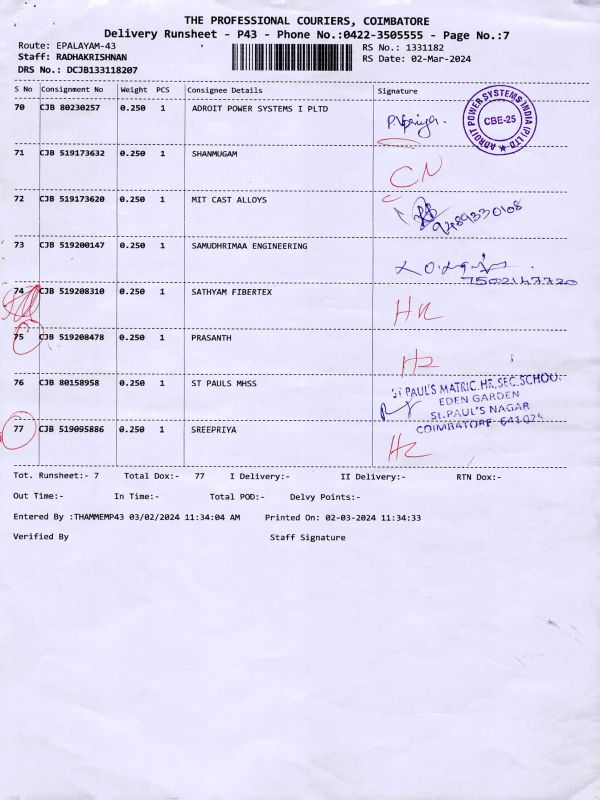 THE PROFESSIONAL COURIERS, COIMBATORE
Delivery Runsheet - P43 - Phone No.:0422-3505555 - Page No.:7
Route: EPALAYAM-43 RS No.: 1331182
Staff: RADHAKRISHNAN RS Date: 02-Mar-2024
DRS No.: DCJB133118207
S No Consignment No Weight PCS Consignee Details Signature
70 CJB 80230257 0.250 1 ADROIT POWER SYSTEMS I PLTD
ADROIT POWER SYSTEMS INDIA (P) LTD
CBE-25
71 CJB 519173632 0.250 1 SHANMUGAM CN
72 CJB 519173620 0.250 1 MIT CAST ALLOYS 9489330108
73 CJB 519200147 0.250 1 SAMUDHRIMAA ENGINEERING
7502147720
74 CJB 519208310 0.250 1 SATHYAM FIBERTEX
75 CJB 519208478 0.250 1 PRASANTH
76 CJB 80158958 0.250 1 ST PAULS MHSS
ST PAUL'S MATRIC.HR.SEC.SCHOOL
EDEN GARDEN
St.PAUL'S NAGAR
COIMBATORE-641025
77 CJB 519095886 0.250 1 SREEPRIYA
Tot. Runsheet:- 7 Total Dox:- 77 I Delivery:- II Delivery:- RTN Dox:-
Out Time:- In Time:- Total POD:- Delvy Points:-
Entered By :THAMMEMP43 03/02/2024 11:34:04 AM Printed On: 02-03-2024 11:34:33
Verified By Staff Signature